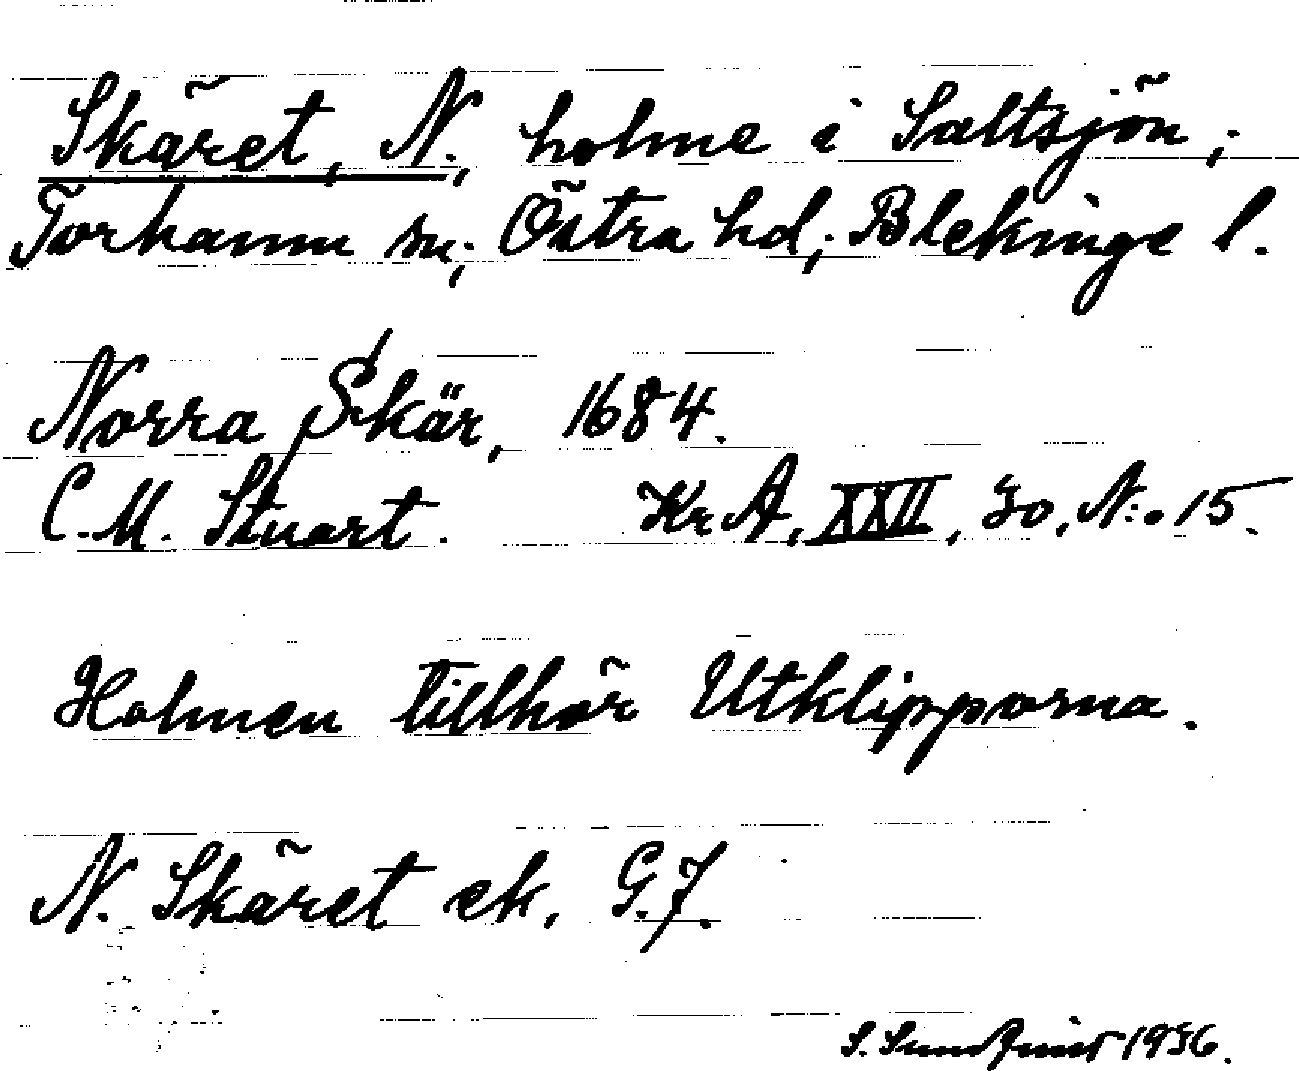 Skäret, N., holme i Saltsjön;
Torhamn sn; Östra hd; Blekinge l.
Norra Skär, 1684.
C.M. Stuart. KrA, XXII, 30, N:o 15.
Holmen tillhör Utklipporna.
N. Skäret ek. G.7.
S. Sundquist 1936.